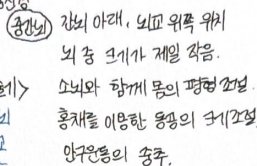 중간뇌 간뇌 아래, 뇌교 위쪽 위치
뇌 중 크기가 제일 작음.
소뇌와 함께 몸의 평형 조절
홍채를 이용한 동공의 크기조절
안구운동의 중추.